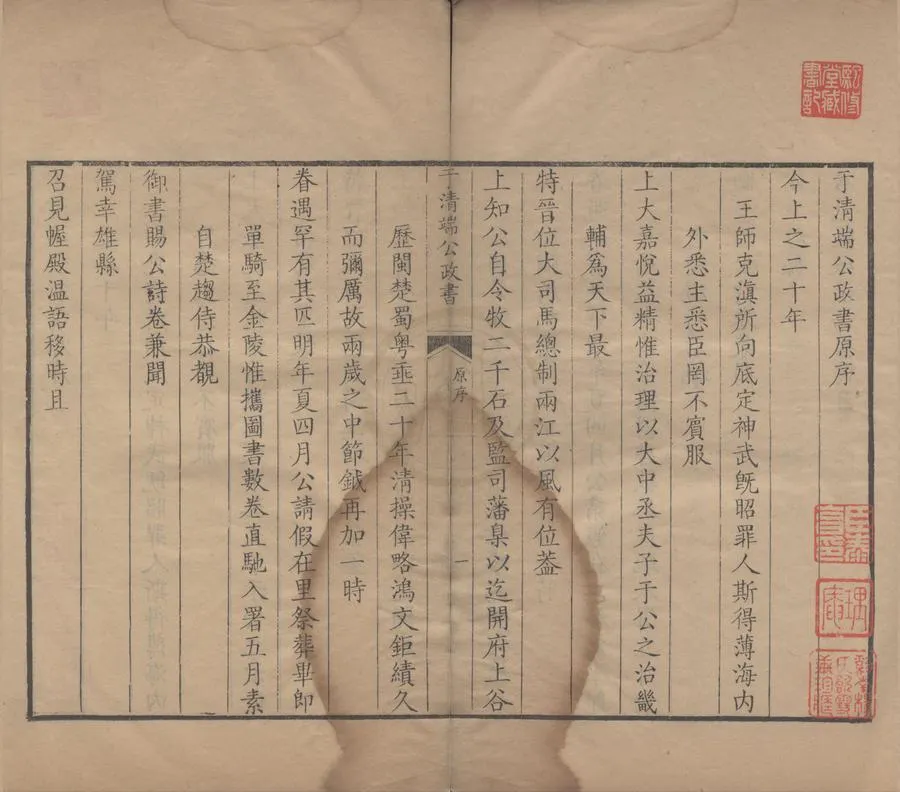 于清端公政書原序
今上之二十年
王師克滇所向底定神武旣昭罪人斯得薄海內
外悉主悉臣罔不賓服
上大嘉悅益精惟治理以大中丞夫子于公之治畿
輔爲天下最
特晉位大司馬總制兩江以風有位葢
上知公自令牧二千石及監司藩臬以迄開府上谷
于清端公政書
原序
一
歷閩楚蜀粤亟二十年清操偉略鴻文鉅績久
而彌厲故兩歲之中節鉞再加一時
眷遇罕有其匹明年夏四月公請假在里祭葬畢即
單騎至金陵惟攜圖書數卷直馳入署五月素
自楚趨侍恭覩
御書賜公詩卷兼聞
駕幸雄縣
召見幄殿温語移時且